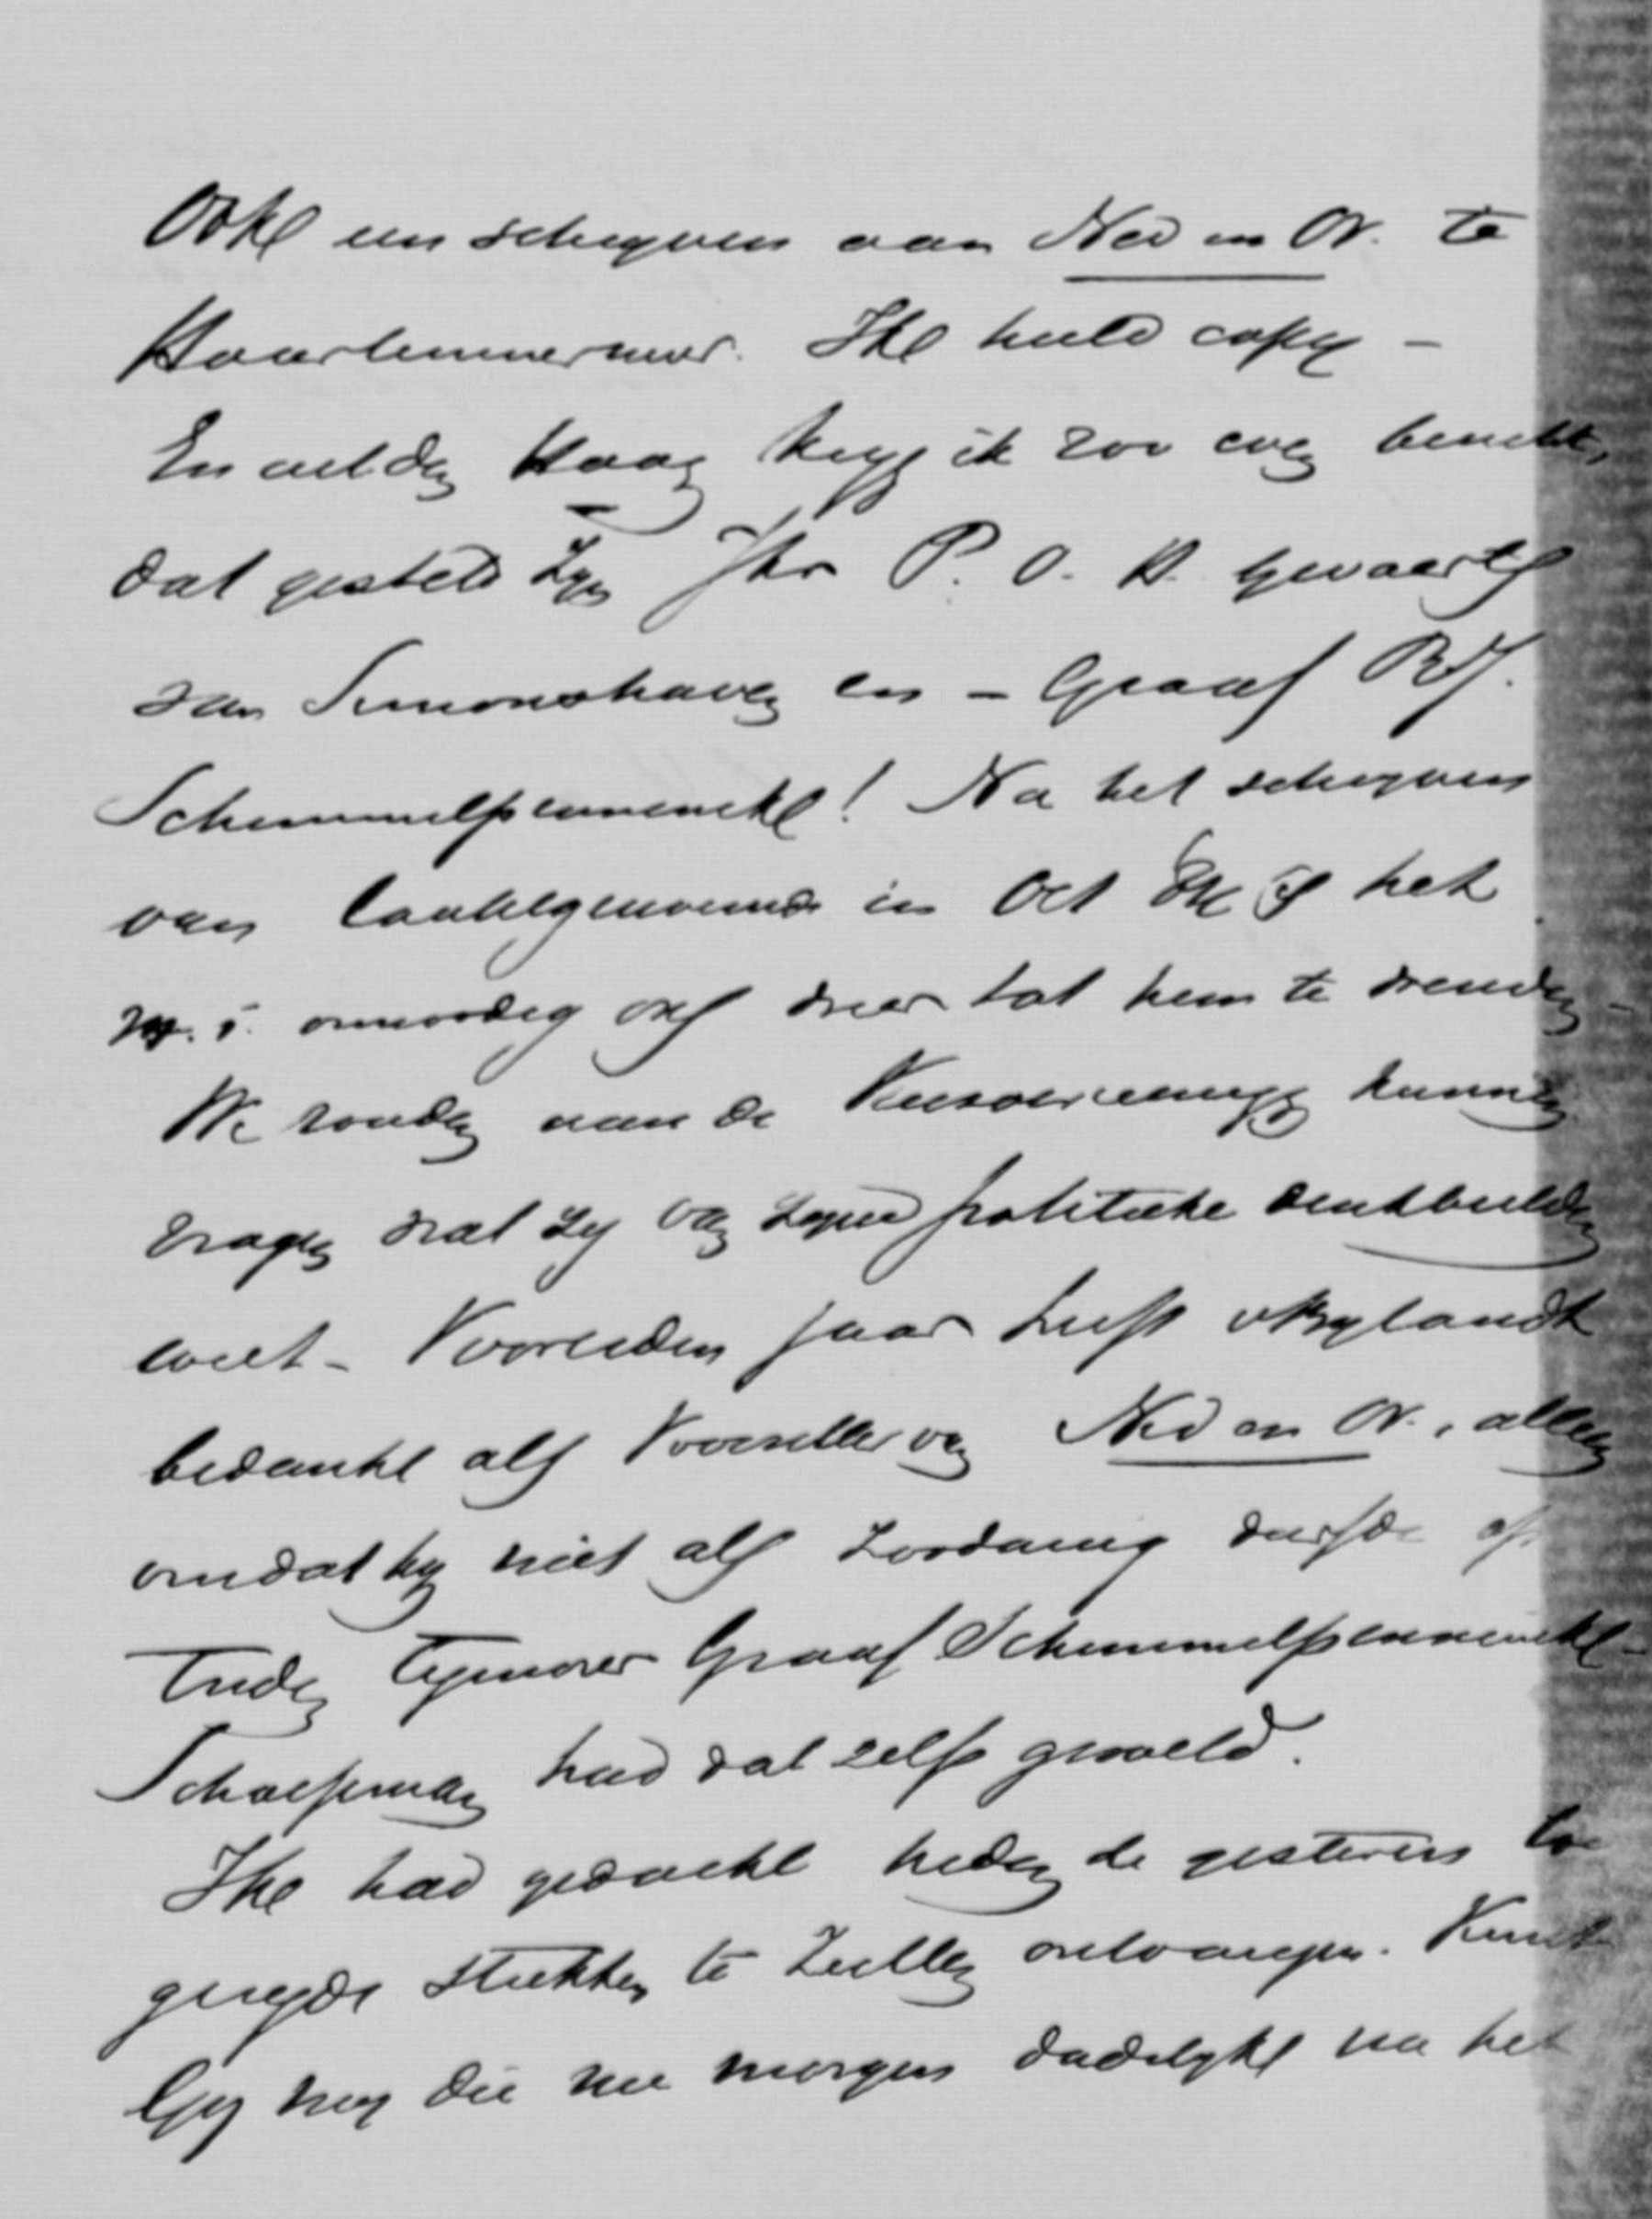 Ook een schrijven aan Ned en Or. te
Haarlemmermeer. Ik hield copy –
En uit den Haag krijg ik zoo even bericht,
dat gesteld zijn Jhr P. O. H. Gevaerts
van Simonshaven en – Graaf R. J.
Schimmelpenninck! Na het schrijven
van laatstgenoemde in Oct is het
m. i. onnoodig ons weer tot hem te wenden –
We zouden aan de Kiesvereeniging kunnen
vragen wat zij van zijne politieke denkbeelden
weet – Voorleden jaar heeft Bylandt
bedankt als Voorzitter van Ned en Or., alleen
omdat hij niet als zoodanig durfde op
treden tegenover Graaf Schimmelpenninck –
Schaepman had dat zelfs gemeld.
Ik had gedacht heden de gisteren toe
gezegde stukken te zullen ontvangen. Kunt
Gij mij die nu morgen dadelijk na het